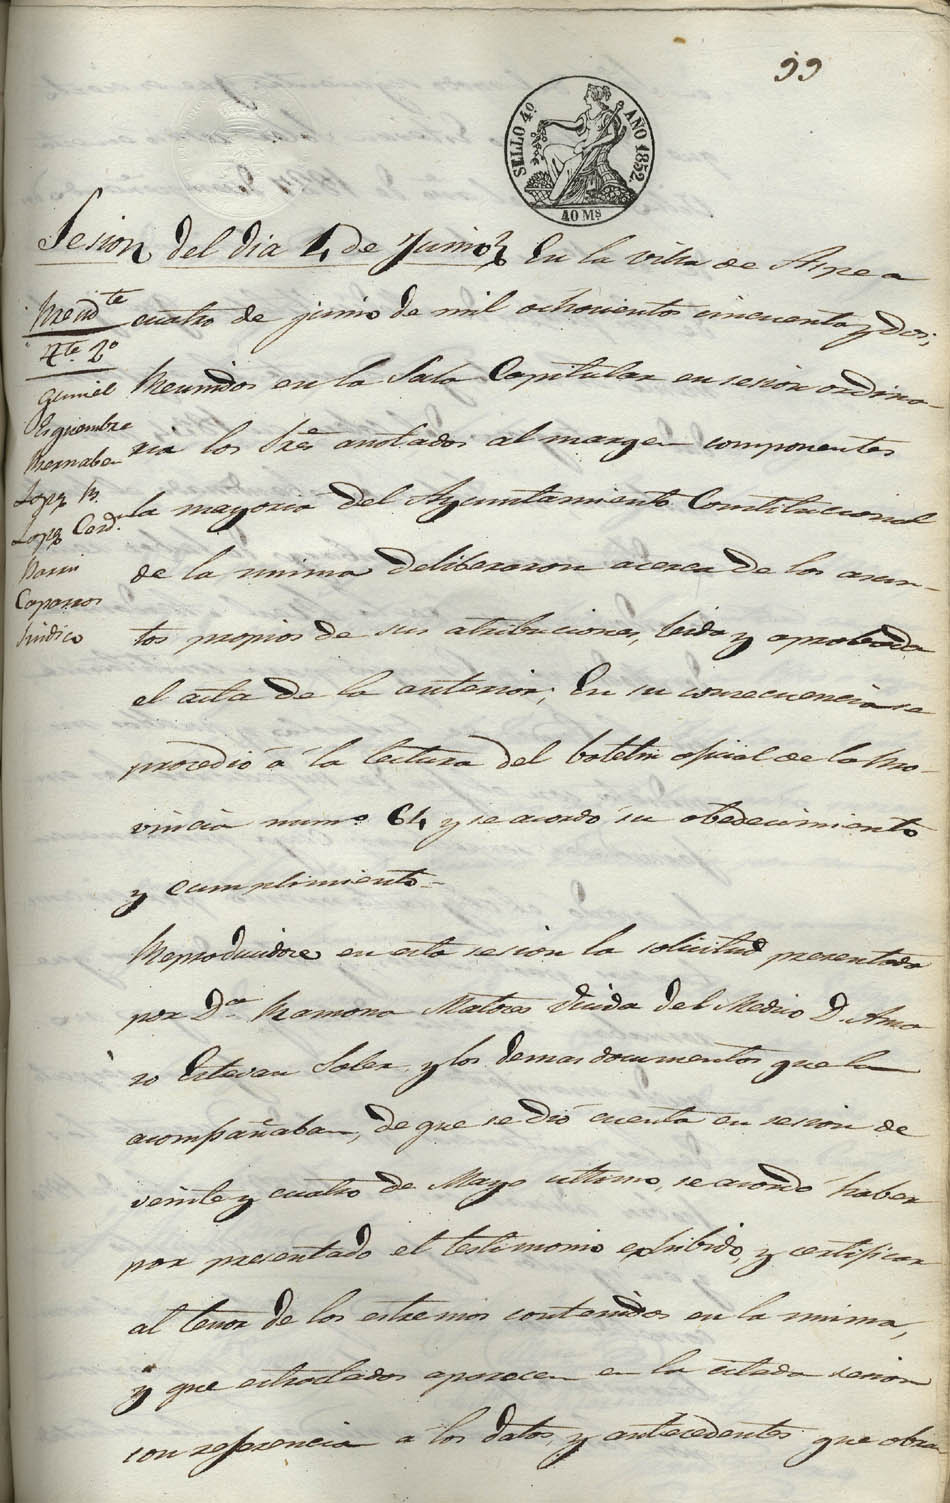 99
SELLO 4º AÑO 1852.
40 Ms
Sesion del dia 4 de Junio En la villa de Aspe a
Presidte
cuatro de junio de mil ochocientos cincuenta y dos;
Tte 2º
Gumiel
Reunidos en la Sala Capitular en sesion ordina-
Bernabeu
ria los Sres anotados al margen componentes
Lopez B.
la mayoria del Ayuntamiento Constitucional
Lopez Cerd.
de la misma deliberaron acerca de los asun-
Caparros
Sindico
tos propios de sus atribuciones, leida y aprobada
el acta de la anterior; En su consecuencia se
procedió á la lectura del boletin oficial de la Pro-
vincia numo 64 y se acordó su obedecimiento
y cumplimiento-
Reproducidose en esta sesion la solicitud presentada
por Da Ramona Mataes viuda del Medico D. Ama
ro Estevan Soler y los demas documentos que la
acompañaban, de que se dió cuenta en sesion de
veinte y cuatro de Mayo ultimo, se acordó haber
por presentado el testimonio exhibido, y certificar
al tenor de los estremos contenidos en la misma,
y que estractados aparecen en la citada sesion
con referencia a los datos, y antecedentes que obran